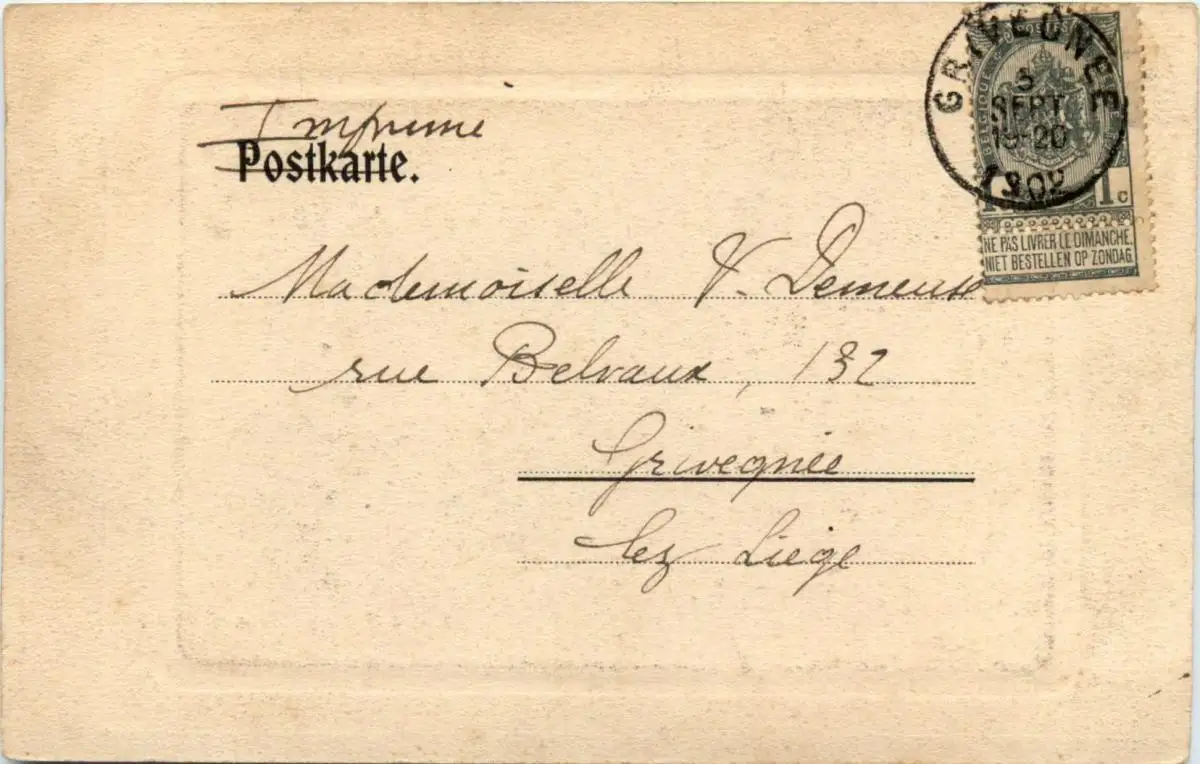 Imprimé
Postkarte.
GRIVEGNEE
3
SEPT.
19-20
1902
BELGIQUE
1 1c
NE PAS LIVRER LE DIMANCHE.
NIET BESTELLEN OP ZONDAG.
Mademoiselle V. Demeuse
rue Belvaux, 132
Grivegnée
lez Liége